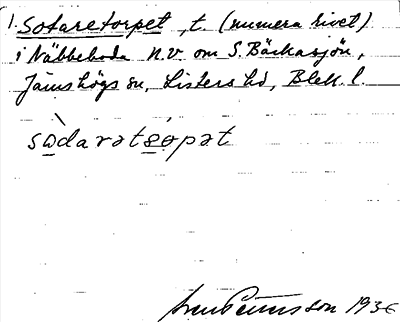 1. Sotaretorpet, t. (numera rivet)
i Näbbeboda n.v om S. Bäckasjön,
Jämshögs sn, Listers hd, Blek. l.
sòdaratsópat
Sven Pettersson 1936